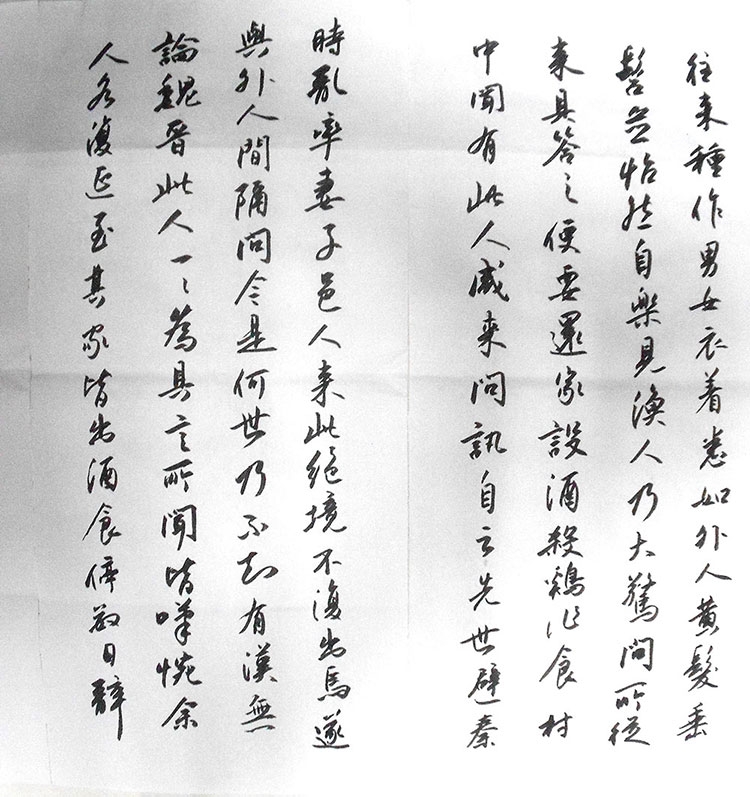 往来種作男女衣着悉如外人黄髮垂
髫並怡然自樂見漁人乃大驚問所從
来具答之便要還家設酒殺鷄作食村
中聞有此人咸来問訊自云先世避秦
時亂率妻子邑人来此絕境不復出焉遂
與外人間隔問今是何世乃不知有漢無
論魏晋此人一一為具言所聞皆嘆惋余
人各復延至其家皆出酒食停數日辭